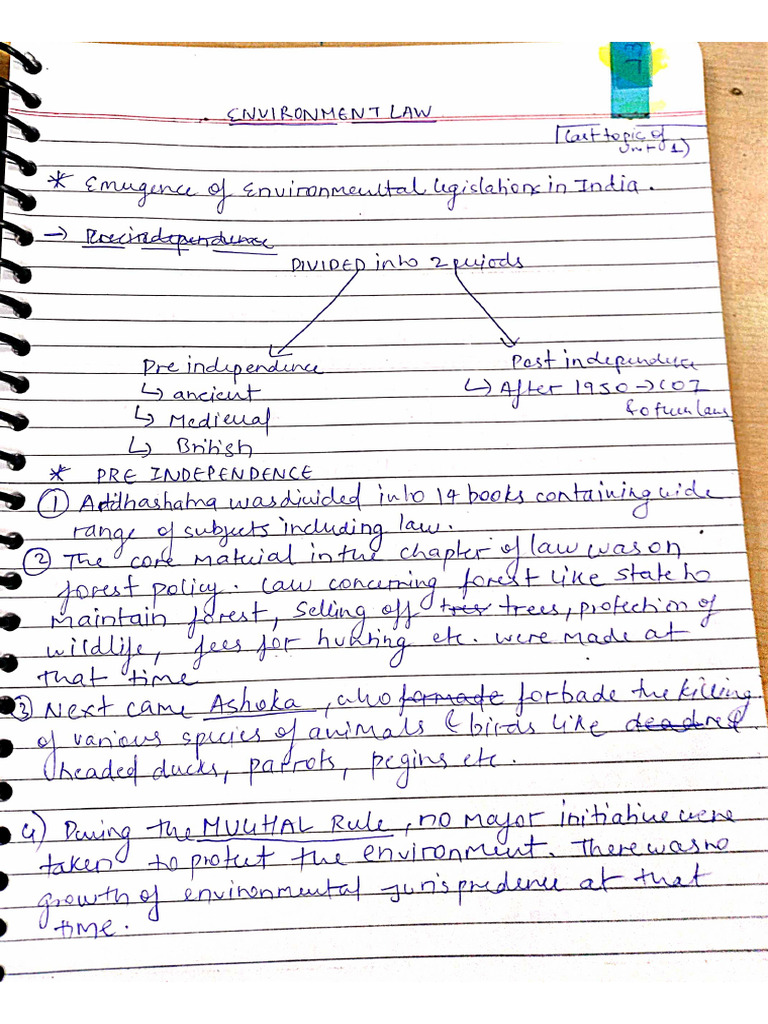 37
ENVIRONMENT LAW
(Last topic of
Unit 1)
* Emergence of Environmental legislations in India.
→ Preindependence
DIVIDED into 2 periods
Pre independence
↳ ancient
↳ Medieval
↳ British
Post independence
↳ After 1950 → COI
& other laws
* PRE INDEPENDENCE
① Arthashatra was divided into 14 books containing wide
range of subjects including law.
② The core material in the chapter of law was on
forest policy. Law concerning forest like state to
maintain forest, selling off tres trees, protection of
wildlife, fees for hunting etc. were made at
that time
③ Next came Ashoka, who formade forbade the killing
of various species of animals & birds like deadred
headed ducks, parrots, pegins etc.
4) During the MUGHAL Rule, no major initiative were
taken to protect the environment. There was no
growth of environmental jurisprudence at that
time.